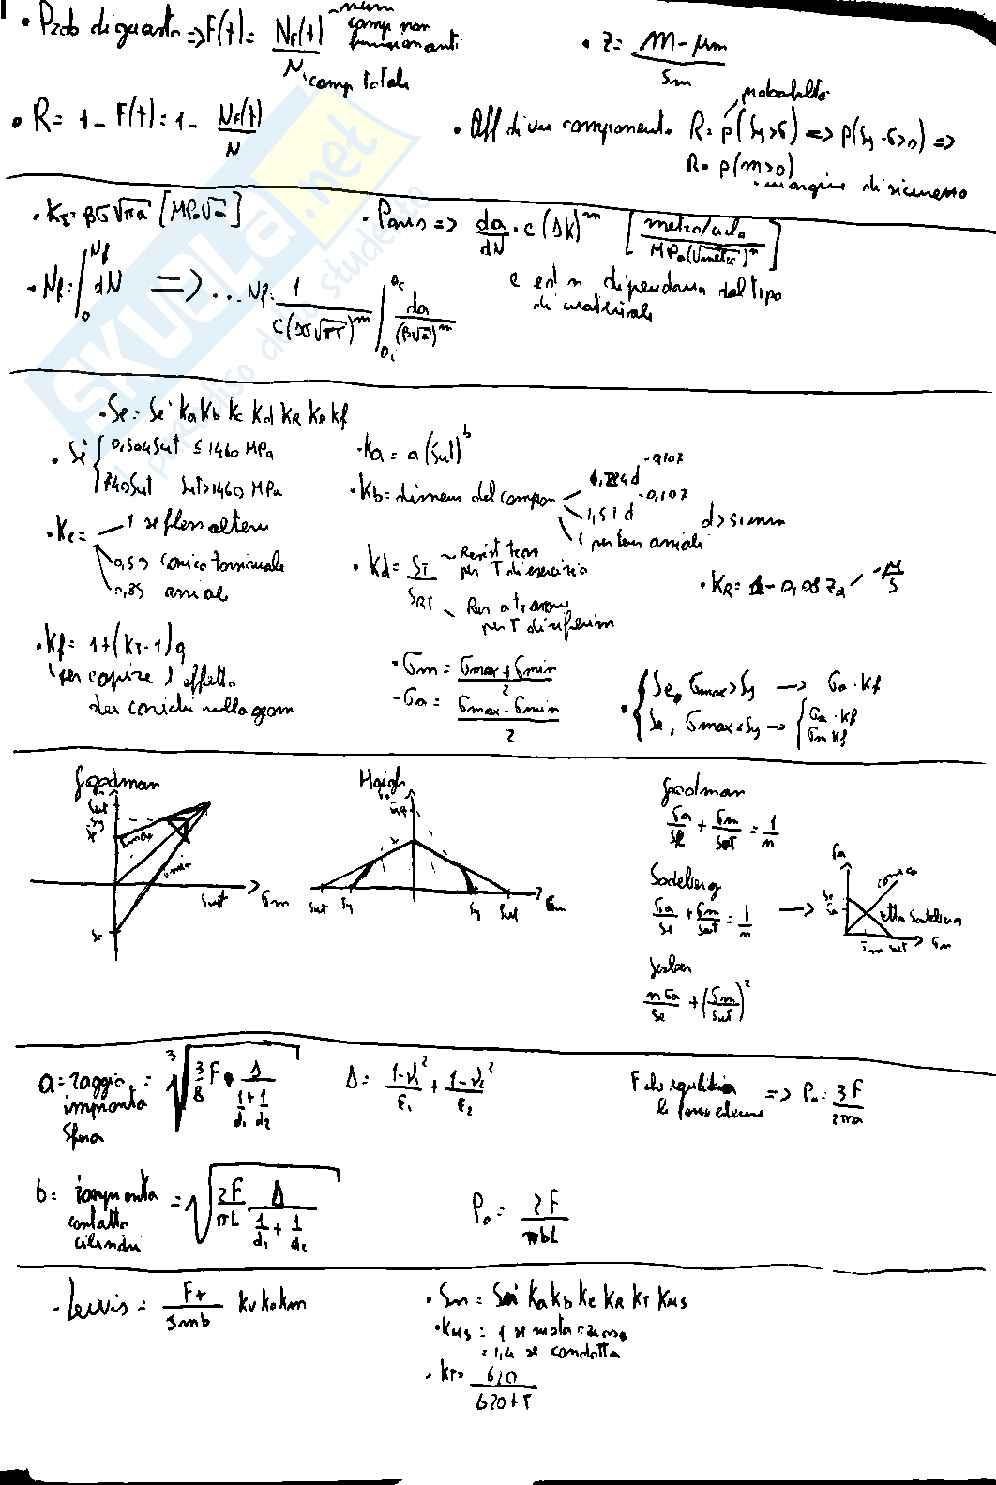 • Prob di guasto => F(t) = Nf(t) / N
num comp non funzionanti
comp totale
• z = m - μm / Sm
• R = 1 - F(t) = 1 - Nf(t) / N
• Aff di un componente R = p(Sy > σ) => p(Sy - σ > 0) =>
probabilità
R = p(m > 0)
margine di sicurezza
• KI = βσ√πa [MPa√a]
• Paris => da/dN = c(ΔK)^m [metro/ciclo / MPa(√metri)^m]
c ed m dipendono dal tipo di materiale
• Nf = ∫ dN => ... Nf = 1 / c(Δσ√π)^m ∫ da / (β√a)^m
SKUOLA.net
• Se = Se' Ka Kb Kc Kd KR Ke Kf
• Se' { 0,504 Sut ≤ 1460 MPa
740 Sut Sut > 1460 MPa
• Ka = a (Sut)^b
• Kb = dimens del compon
1,24 d^-0,107
1,51 d^-0,107 d > 51 mm
1 per tens assiale
• Kc =
1 se fless alteru
0,59 carico torsionale
0,85 assiale
• Kd = ST / SRT
Resist tens per T di esercizio
per T di riferim
• KR = 1 - 0,08 za
μ/S
• Kf = 1 + (KT - 1) q
per capire l'effetto
dei carichi
• σm = σmax + σmin / 2
- σa = σmax - σmin / 2
• { Se, σmax > Sy → σa · Kf
Se, σmax < Sy → { σa · Kf
σm Kf
Goodman
Sut
Sy
Se
σmax
σmin
Sut
σm
Se
Haigh
σa
Sut Sy Sy Sut σm
Goodman
σa/Se + σm/Sut = 1/n
Soderberg
σa/Se + σm/Sut = 1/n →
σa
Se
σa
carico
retta Soderberg
σm Sut σm
Gerber
nσa/Se + (σm/Sut)^2
a = raggio impronta sfera = ∛(3/8 F · Δ / (1/d1 + 1/d2))
Δ = 1-ν1^2 / E1 + 1-ν2^2 / E2
F da equilibrio le forze esterne => Po = 3F / 2πa
b = impronta contatto cilindri = √(2F/πL Δ / (1/d1 + 1/d2))
Po = 2F / πbL
- Lewis = Ft / Jmb Kv Ko Km
• Sn = Sn' Ka Kb Kc KR KT Kms
• Kms = 1 se ruota
= 1,4 se condotta
• KT = 620 / 620 + T